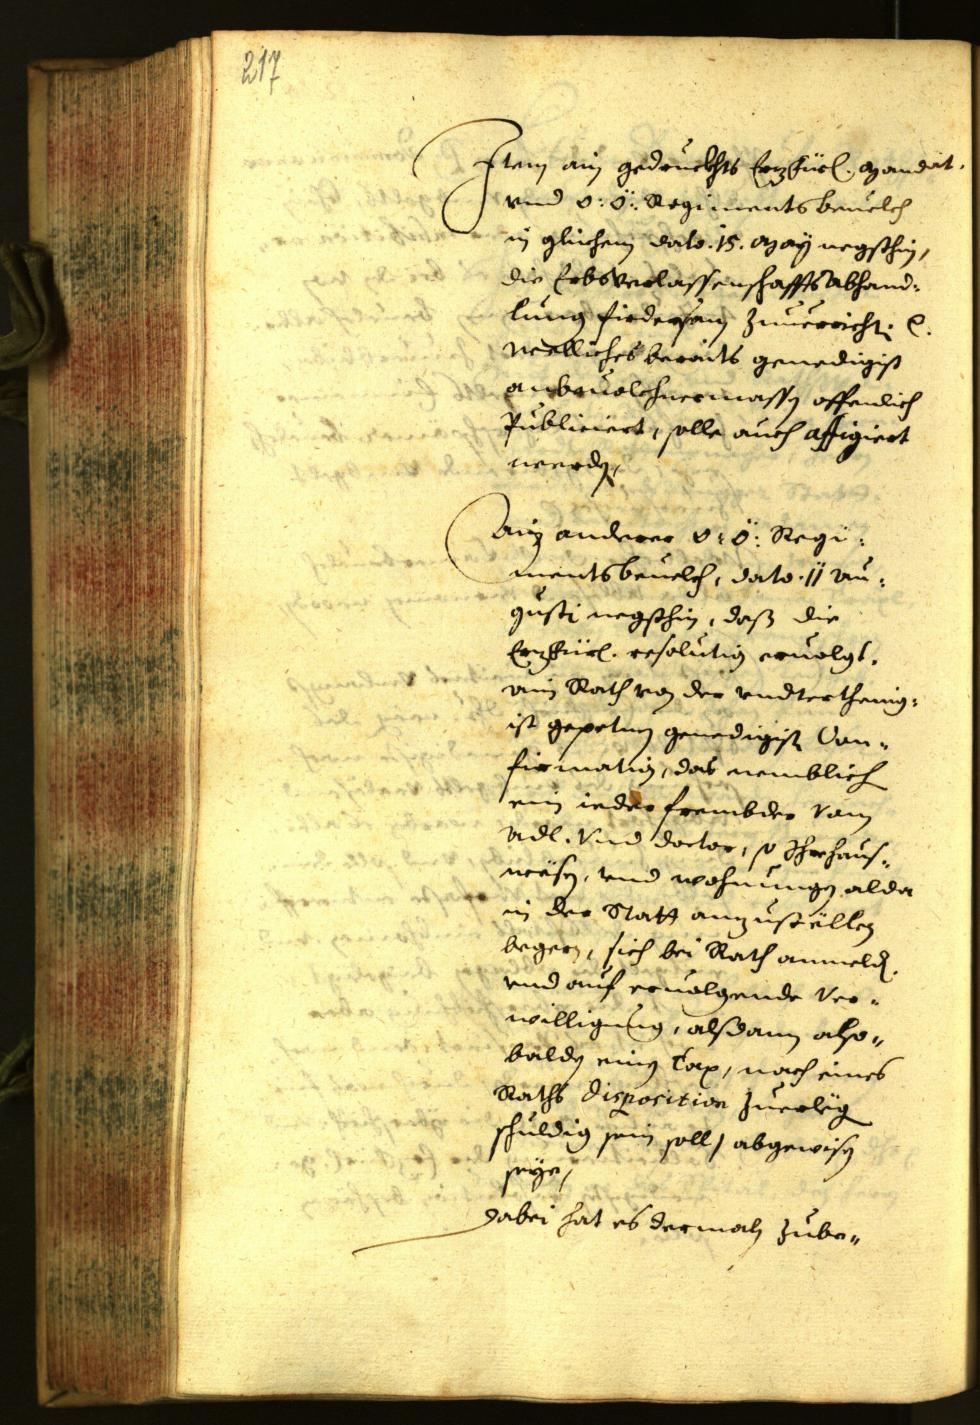 217
Item ain gedruckhts Erzfürl. Mandat.
vnd O: Ö: Regiments beuelch
in glichem dato. 15. May negsthin,
die Erbsverlassenschaffts abhand-
lung fürdersam zuuerricht. ec.
welliches beraits genedigist
anbeuolchnermassen offendlich
Publiciert, solle auch affigiert
werden,
Ain anderer O: Ö: Regi-
ments beuelch, dato. 11 Au-
gusti negsthin, daß die
Erzfürl. resolution eruolgt.
ain Rath von der vndterthenig-
ist gepetnen genedigist Con-
firmation, das nemblich
ein ieder frembder vom
Adl. Vnd doctor, so Ihr haus-
wësen, vnd wohnungen alda
in der Statt anzustëllen
begern, sich bei Rath anmelden.
vnd auf eruolgende Ver-
willigung, alsdann also-
balden einen Tax, nach eines
Raths disposition zuerlëgen
schuldig sein soll, abgewisen
seye,
Dabei hat es dermaln zube-